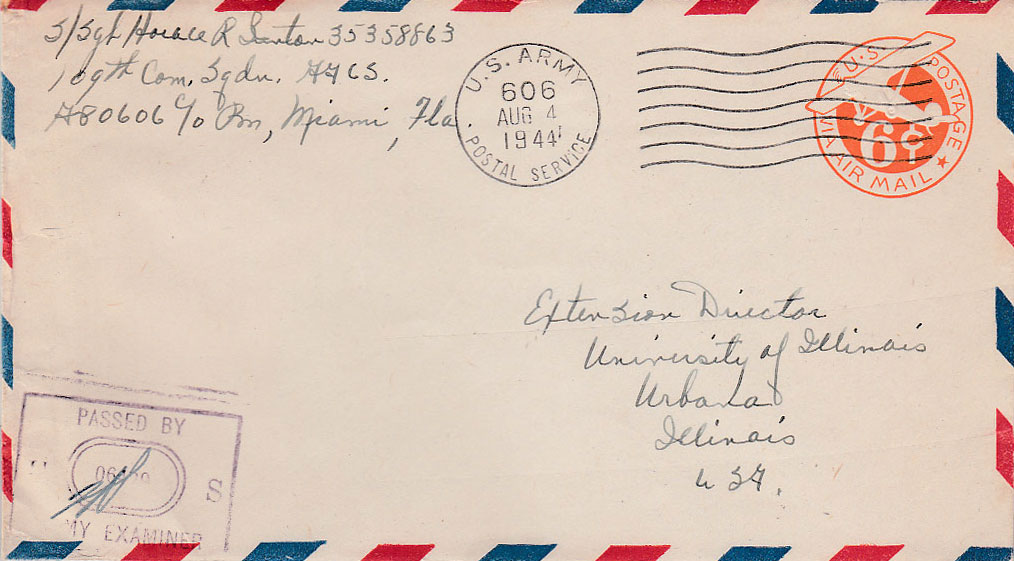 S/Sgt Horace R 35358863
109th Com. Sqdn. AACS.
APO 606 c/o Pm, Miami, Fla.
U.S. ARMY
606
AUG 4
1944
POSTAL SERVICE
U.S. POSTAGE
6¢
VIA AIR MAIL
Extension Director
University of Illinois
Urbana
Illinois
USA.
PASSED BY
U S
EXAMINER